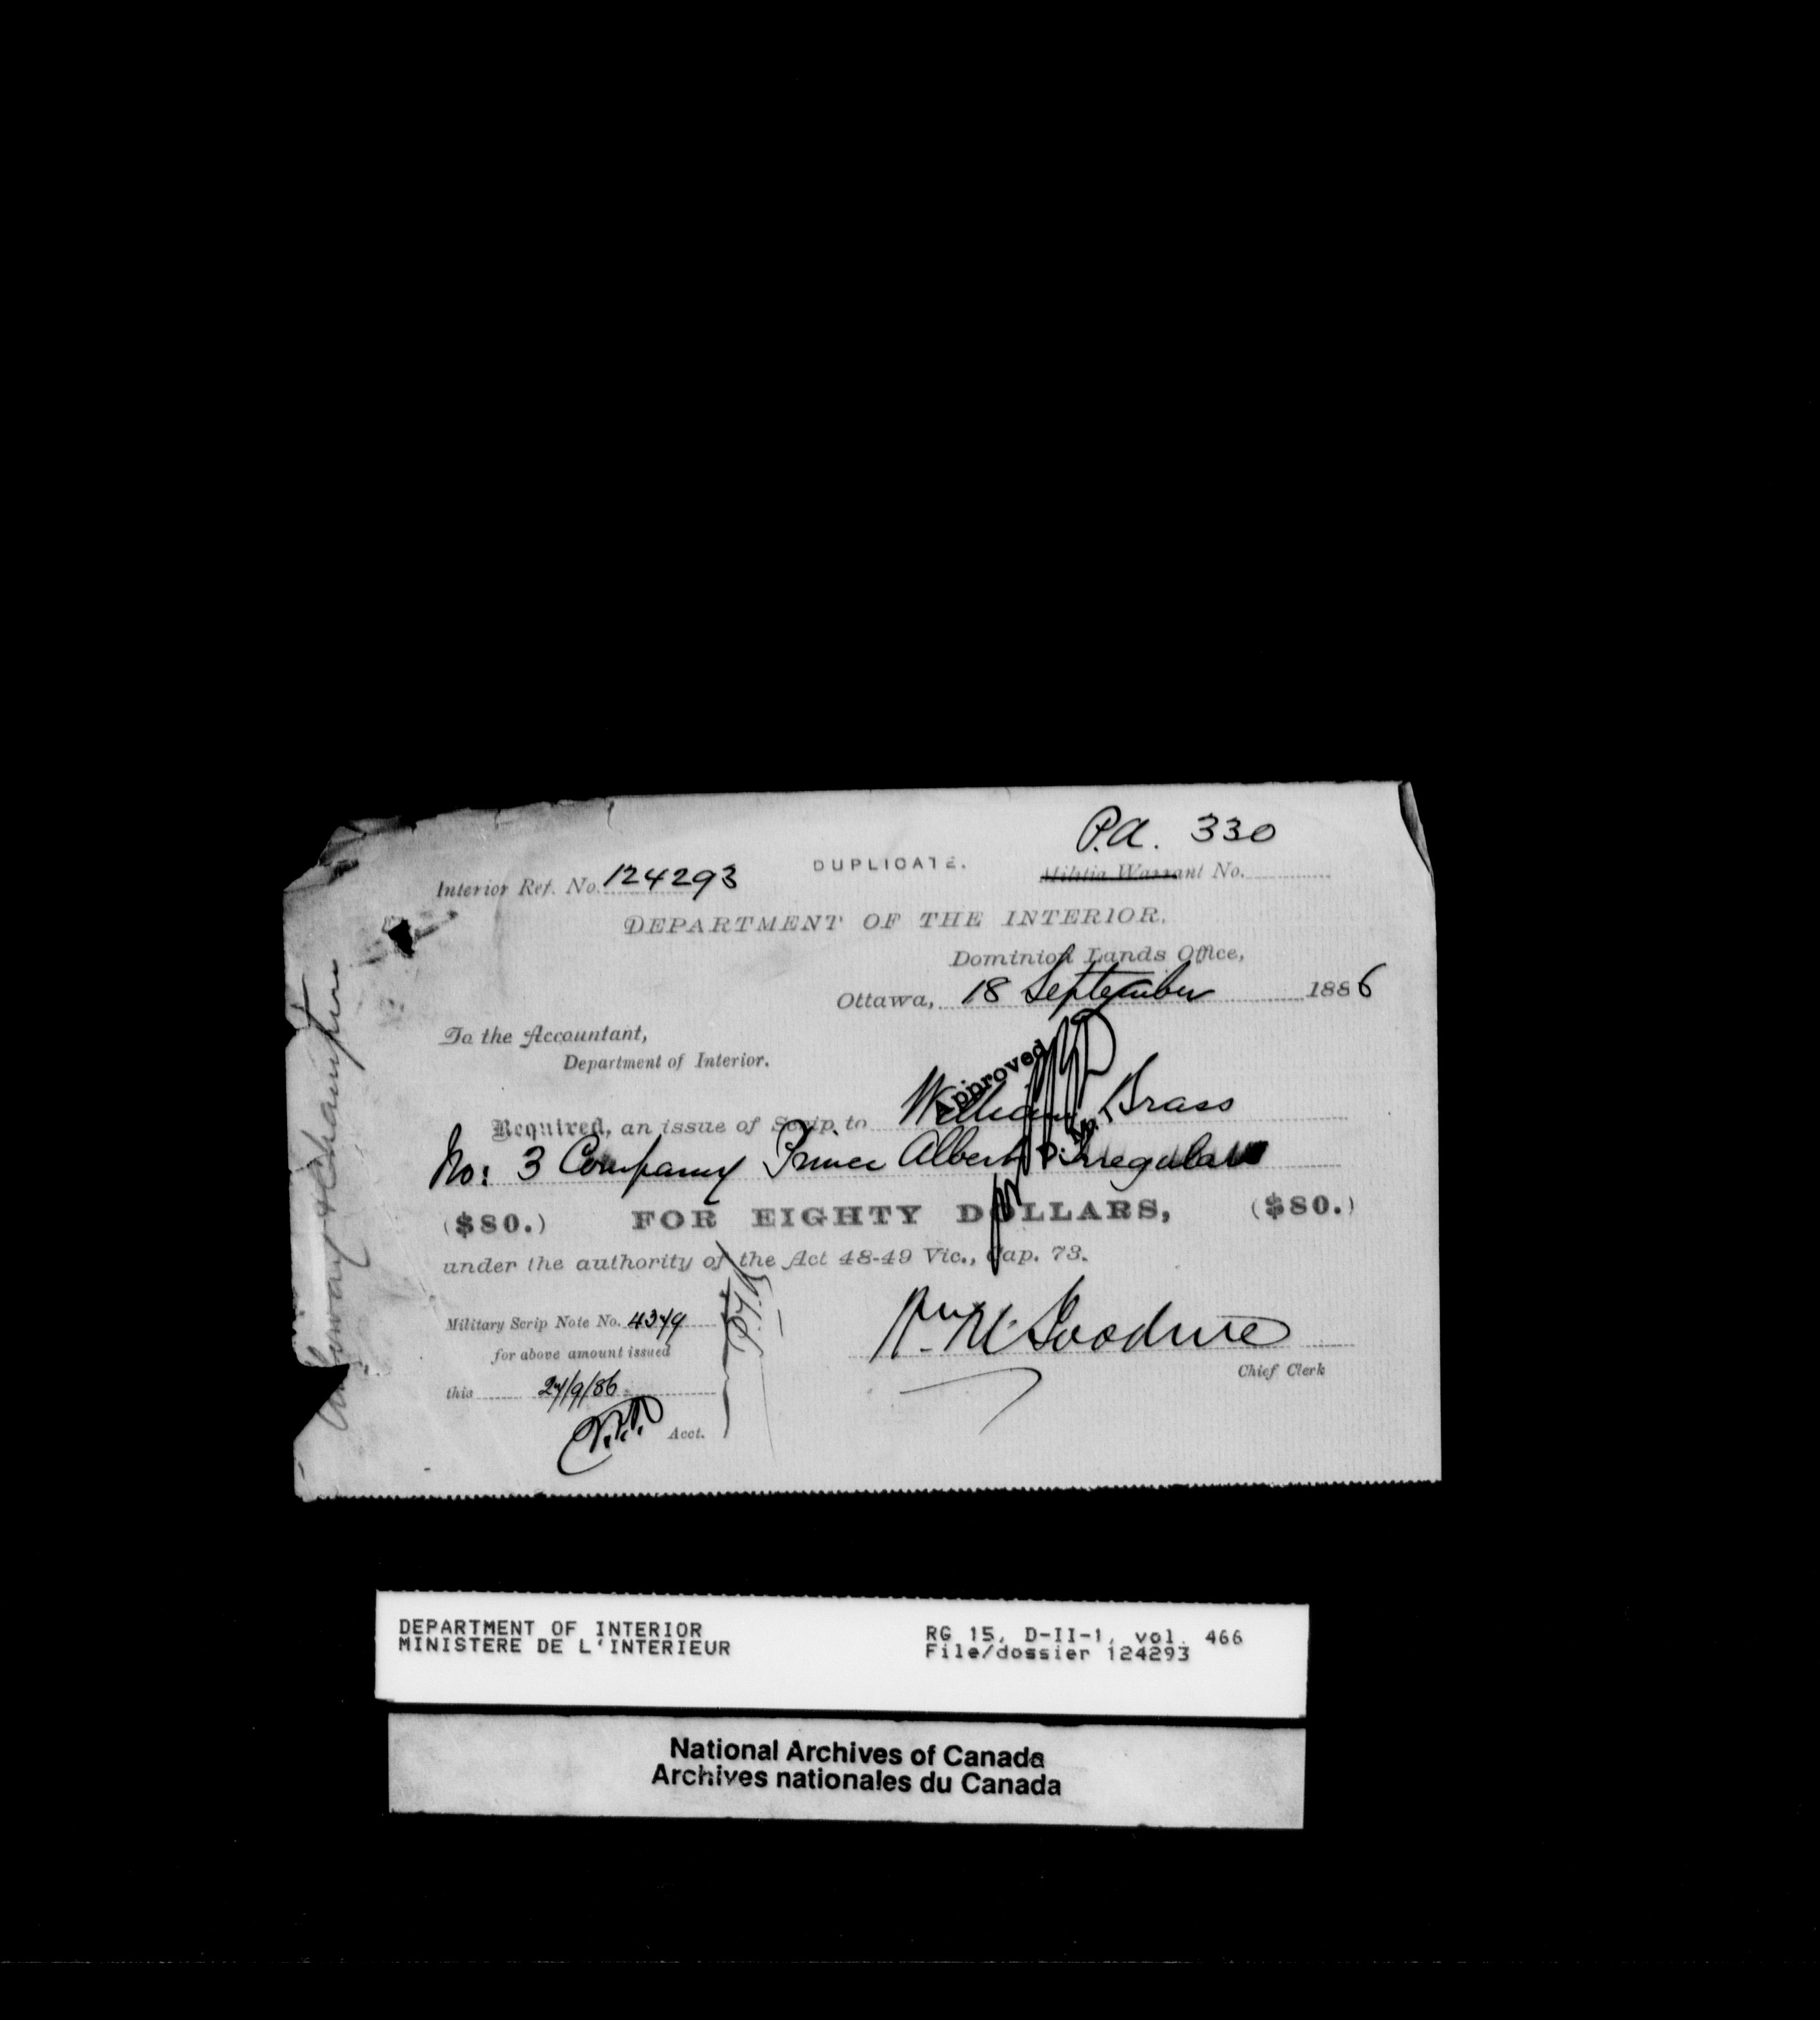 P.A. 330
DUPLICATE.
Interior Ref. No. 124293
Militia Warrant No.
DEPARTMENT OF THE INTERIOR.
Dominion Lands Office,
Ottawa, 18 September 1886
To the Accountant,
Department of Interior.
Approved
Required, an issue of Scrip to William Brass
No: 3 Company Prince Albert Irregulars
($80.) FOR EIGHTY DOLLARS, ($80.)
under the authority of the Act 48-49 Vic., Cap. 73.
Military Scrip Note No. 4379
for above amount issued
this 27/9/86
Acct.
Chief Clerk
& Champion
DEPARTMENT OF INTERIOR
MINISTERE DE L'INTERIEUR
RG 15, D-II-1, vol. 466
File/dossier 124293
National Archives of Canada
Archives nationales du Canada